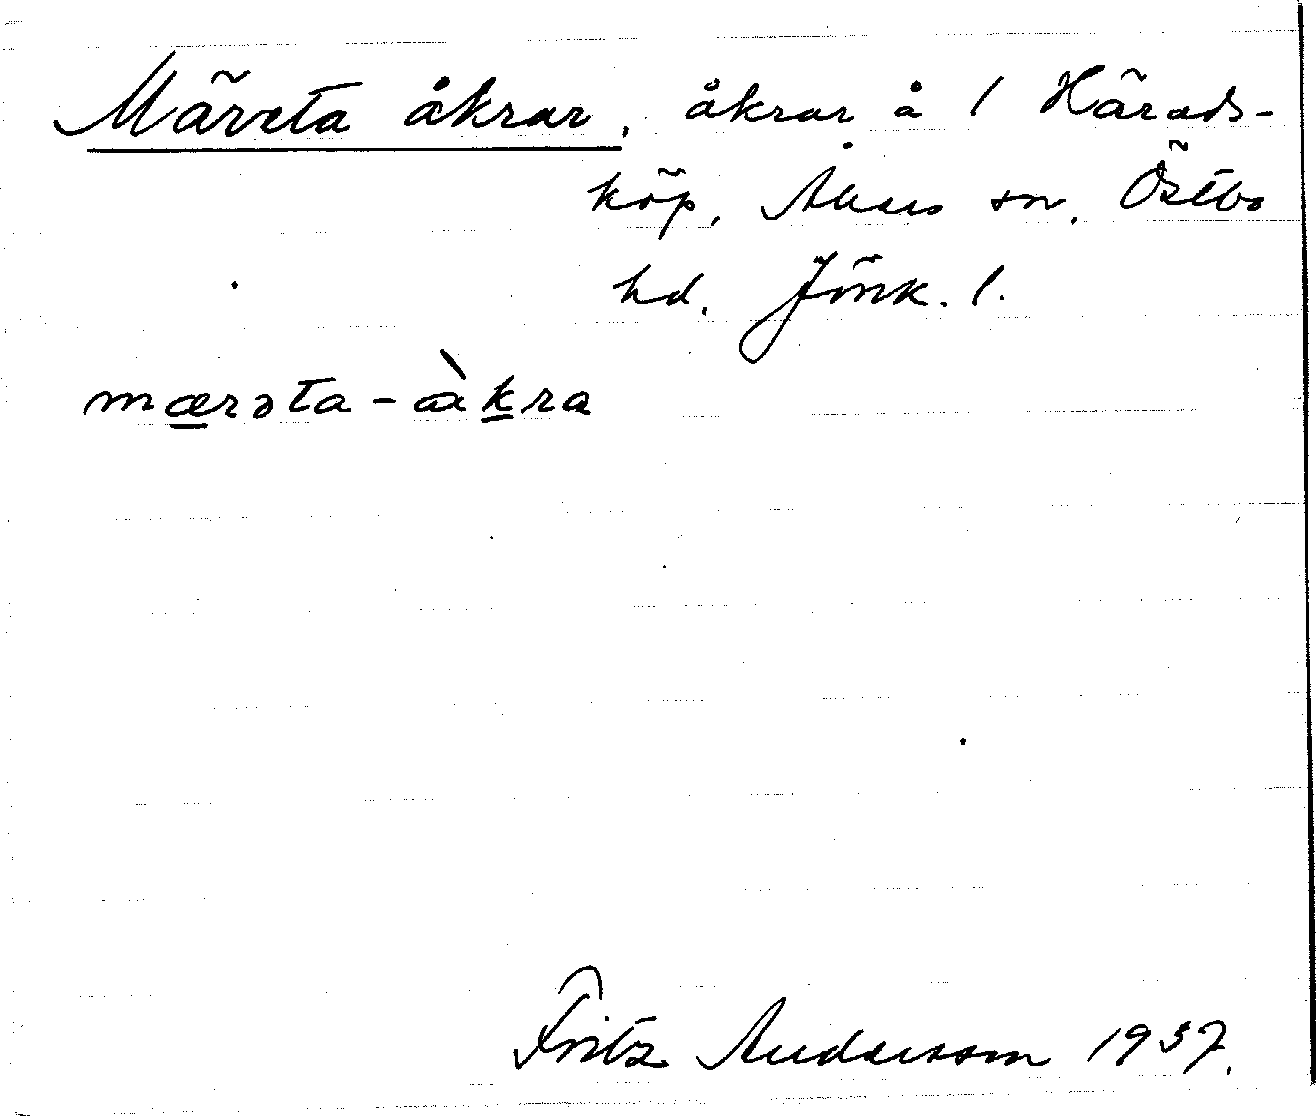 Märeta åkrar, åkrar å 1 Härads-
köp, Åkers sn, Östbo
hd. Jönk. l.
mærəta-àkra
Fritz Andersson 1937.